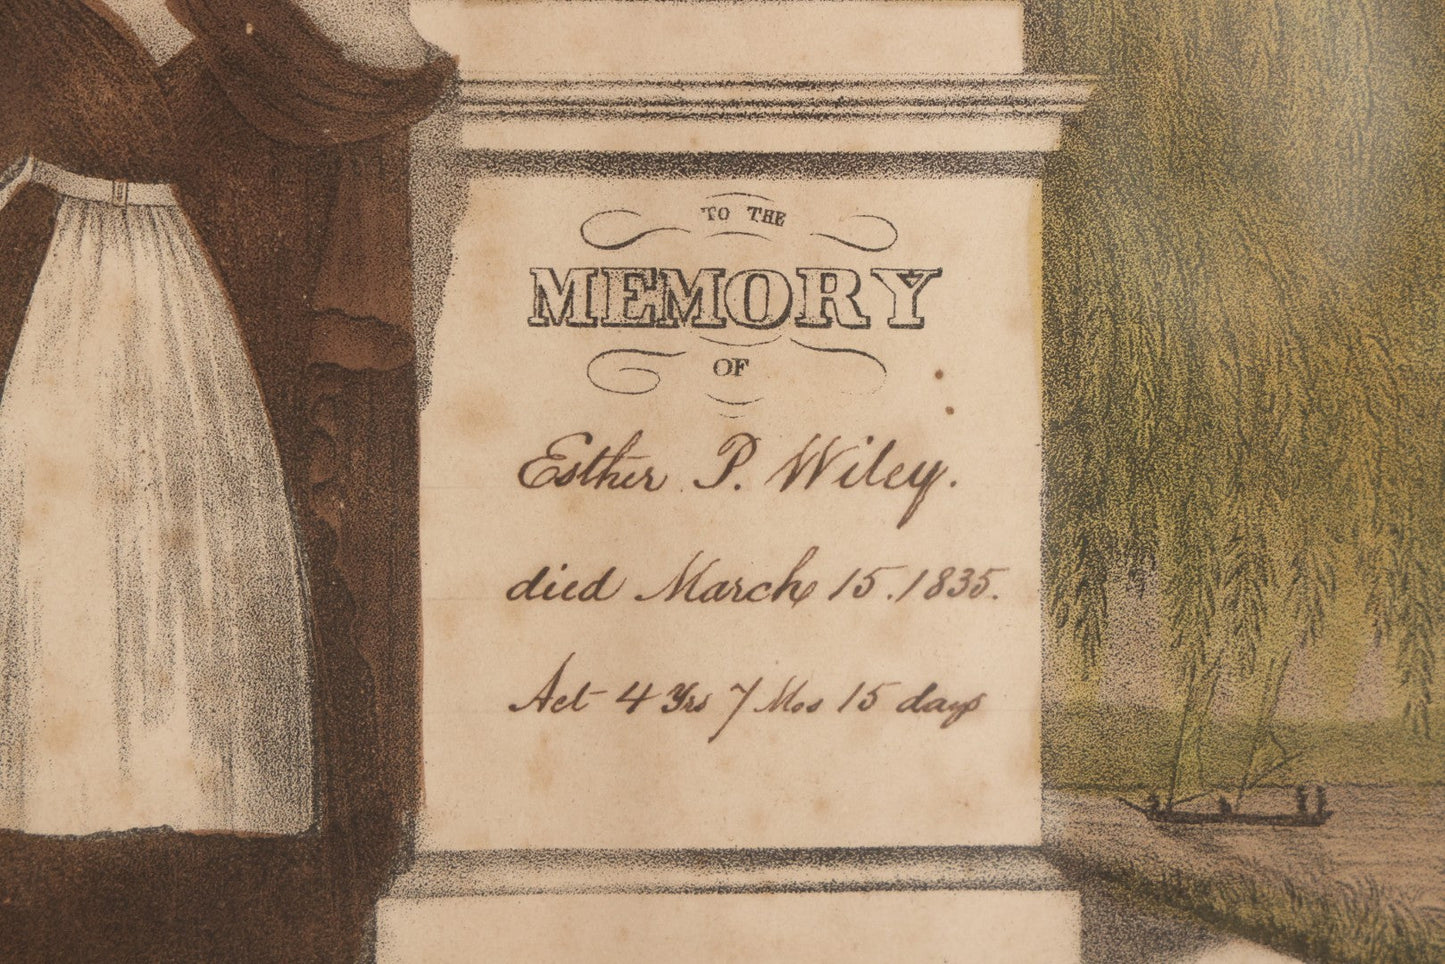 TO THE
MEMORY
OF
Esther P. Wiley.
died March 15. 1835.
Aet 4 Yrs 7 Mos 15 days